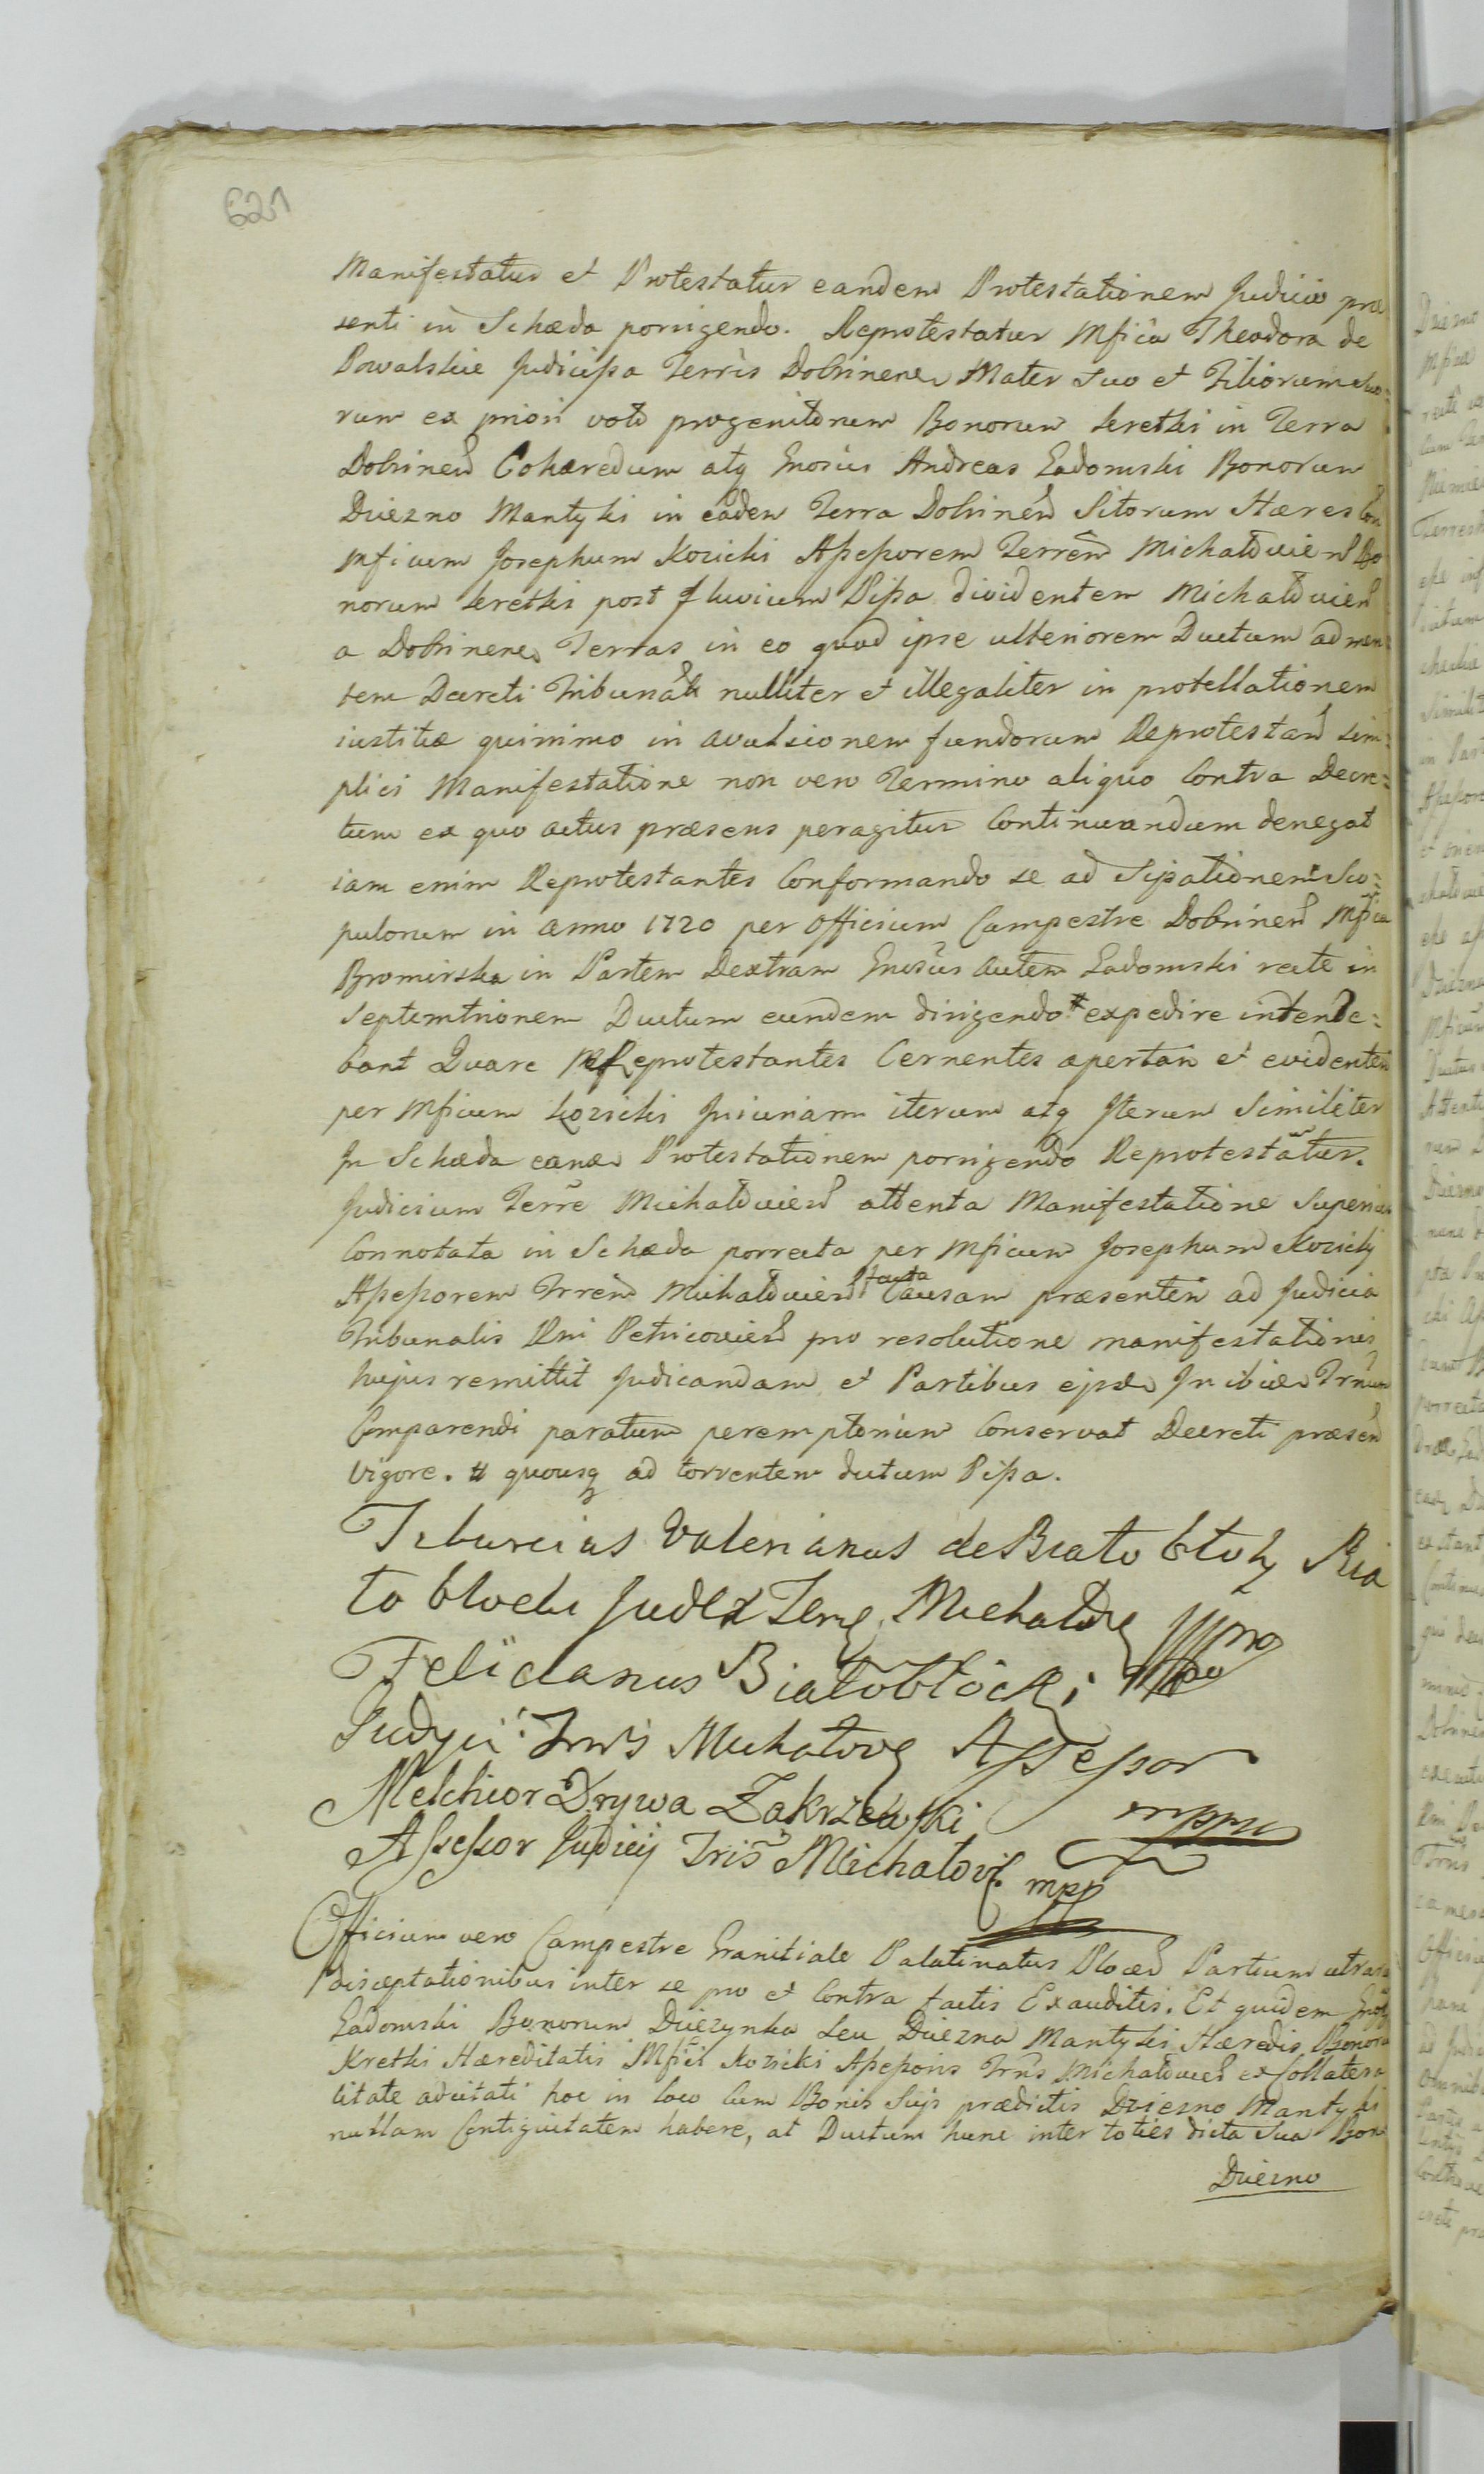 621
Manifestatur et Protestatur eandem Protestationem Judicio præ
senti in Schæda porrigendo. Reprotestatur Mfica Theodora de
Powalskie Judicissa Terris Dobrinens Mater suo et Filiorum suo=
rum ex priori voto progenitorum Bonorum Kretki in Terra
Dobrinen Cohæredum atq Gnosus Andreas Ladomski Bonorum
Dziezno Mantyki in eadem Terra Dobrinen Sitorum Hæres Con
Mficum Josephum Kozicki Assessorem Terren Michałovien Bo
norum Kretki post fluvium Pissa dividentem Michałovien
a Dobrinens Terras in eo quod ipse ulteriorem Ductum ad men=
tem Decreti Tribunalis nulliter et illegaliter in protellationem
iustitiæ quinimo in avulsionem fundorum Reprotestan sim=
plici Manifestatione non vero Termino aliquo Contra Decre=
tum ex quo actus præsens peragitur Continuandum denegat
iam enim Reprotestantes Conformando se ad Sipationem Sco=
pulorum in anno 1720 per officium Campestre Dobrinen Mfica
Bromirska in Partem Dextram Gnosus autem Ladomski recte in
Septemtrionem Ductum eundem dirigendo # expedire intende=
bant Quare Reprotestantes Cernentes apertam et evidentem
per Mficum Kozicki Injuriam iterum atq Iterum Similiter
In Schæda eande Protestationem porrigendo Reprotestantur.
Judicium Terre Michałovien attenta Manifestatione Superius
Connotata in Schæda porrecta per Mficum Josephum Kozicki
Assessorem Trren Michałovien facta Causam præsentem ad Judicia
Tribunalis Rni Petricovien pro resolutione manifestationis
hujus remittit Judicandam et Partibus ejsde Inibide Trnum
Comparendi paratum peremptorium Conservat Decreti præsen
vigore. # quousq ad torrentem dictum Pissa.
Tiburcius Valerianus de Białobłoty Bia
tobłocki Judex Terre Michałov mpro
Felicianus Białobłocki mpp
Judycii Trris Michałov Assessor
Melchior Drywa Zakrzewski mppria
Assessor Judicij Tris Michałov mpp
Officium vero Campestre Granitiale Palatinatus Plocen Partium utraru
disceptationibus inter se pro et Contra factis Exauditis. Et quidem Gnosi
Ladomski Bonorum Dziezynka seu Dziezna Mantyki Hæredis, Bonora
Kretki Hæreditatis Mfici Kozicki Assessoris Trris Michałovien ex Collatera
litate adcitati hoc in loco cum Bonis Suis prædictis Dziezno Mantyki
nullam Contiguitatem habere, at Ductum hunc inter toties dicta Sua Bon
Dziezno